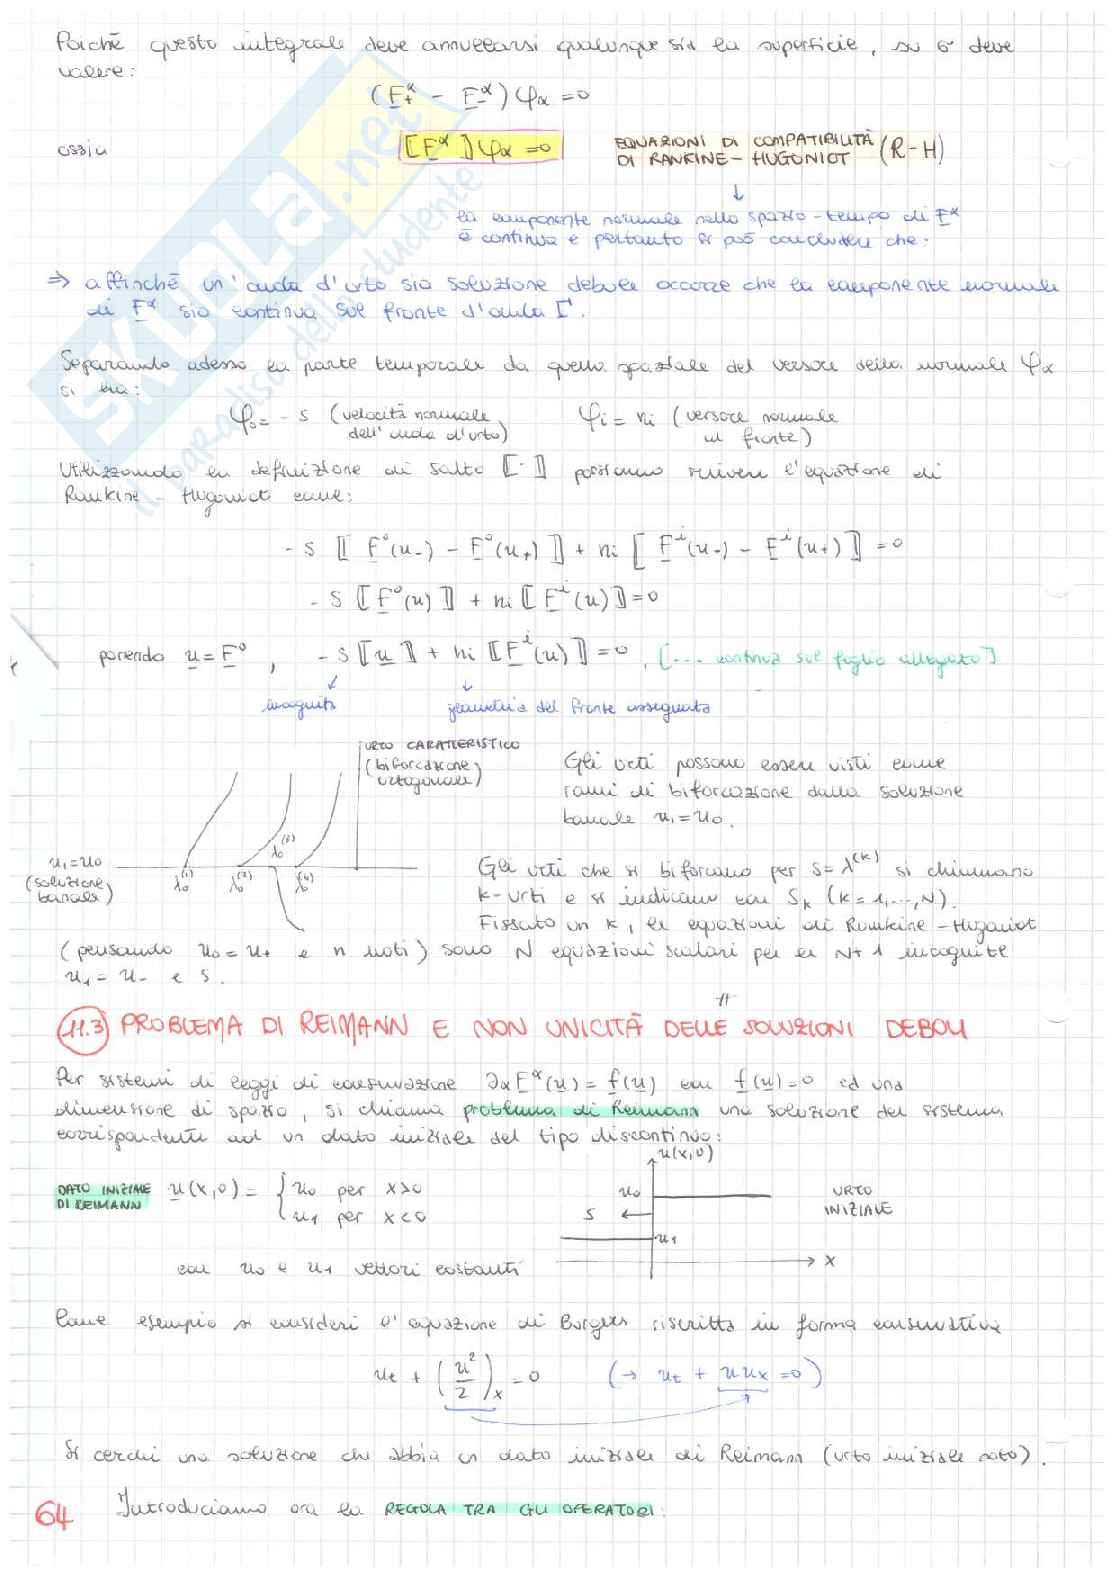 Poiché questo integrale deve annullarsi qualunque sia la superficie, su σ deve
valere:
(F₊^α - F₋^α) φα = 0
ossia ⟦F^α⟧ φα = 0 EQUAZIONI DI COMPATIBILITÀ
DI RANKINE-HUGONIOT (R-H)
↓
la componente normale nello spazio-tempo di F^α
è continua e pertanto si può concludere che:
⇒ affinché un'onda d'urto sia soluzione debole occorre che la componente normale
di F^α sia continua sul fronte d'onda Γ.
Separando adesso la parte temporale da quella spaziale del versore della normale φα
si ha:
φ₀ = -s (velocità normale
dell'onda d'urto)
φi = ni (versore normale
al fronte)
Utilizzando la definizione di salto ⟦·⟧ possiamo scrivere l'equazione di
Rankine-Hugoniot come:
-s ⟦F°(u₋) - F°(u₊)⟧ + ni [F^i(u₋) - F^i(u₊)⟧ = 0
-s ⟦F°(u)⟧ + ni ⟦F^i(u)⟧ = 0
ponendo u = F°, -s ⟦u⟧ + ni ⟦F^i(u)⟧ = 0, [... continua sul foglio allegato]
incognita geometria del fronte assegnata
URTO CARATTERISTICO
(biforcazione
ortogonale)
u₁ = u₀
(soluzione
banale)
λ₀^(1) λ₀^(2) λ₀^(3) λ₀^(4)
Gli urti possono essere visti come
rami di biforcazione dalla soluzione
banale u₁ = u₀.
Gli urti che si biforcano per s = λ^(k) si chiamano
k-urti e si indicano con Sk (k = 1,...,N).
Fissato un k, le equazioni di Rankine-Hugoniot
(pensando u₀ = u₊ e n noti) sono N equazioni scalari per le N+1 incognite
u₁ = u₋ e s.
11.3 PROBLEMA DI REIMANN E NON UNICITÀ DELLE SOLUZIONI DEBOLI
Per sistemi di leggi di conservazione ∂αF^α(u) = f(u) con f(u) = 0 ed una
dimensione di spazio, si chiama problema di Reimann una soluzione del sistema
corrispondente ad un dato iniziale del tipo discontinuo:
DATO INIZIALE
DI REIMANN
u(x,0) = { u₀ per x>0
u₁ per x<0
u(x,0)
u₀
s
u₁
x
URTO
INIZIALE
con u₀ e u₁ vettori costanti
Come esempio si consideri l'equazione di Burgers riscritta in forma conservativa
ut + (u²/2)x = 0 (→ ut + uux = 0)
Si cerchi una soluzione che abbia un dato iniziale di Reimann (urto iniziale noto).
64 Introduciamo ora la REGOLA TRA GLI OPERATORI:
SKUOLA.net
il paradiso dello studente